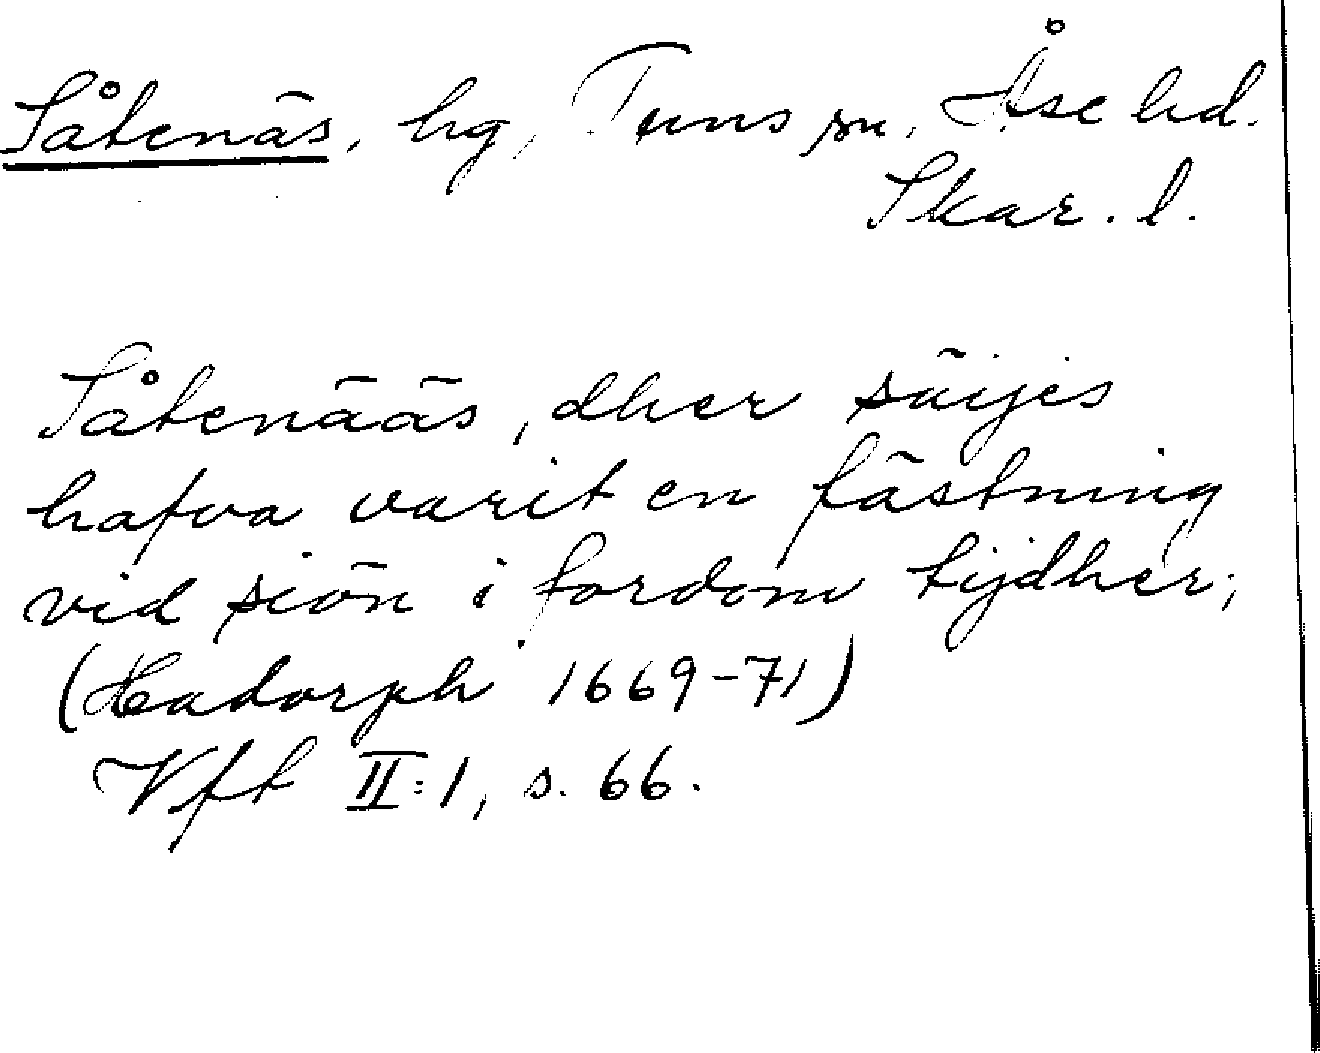 Såtenäs, hg, Tuns sn, Åse hd.
Skar. l.
Såtenääs, dher säijes
hafva varit en fästning
vid siön i fordom tijdher;
(Hadorph 1669-71)
Vft II:1, s. 66.